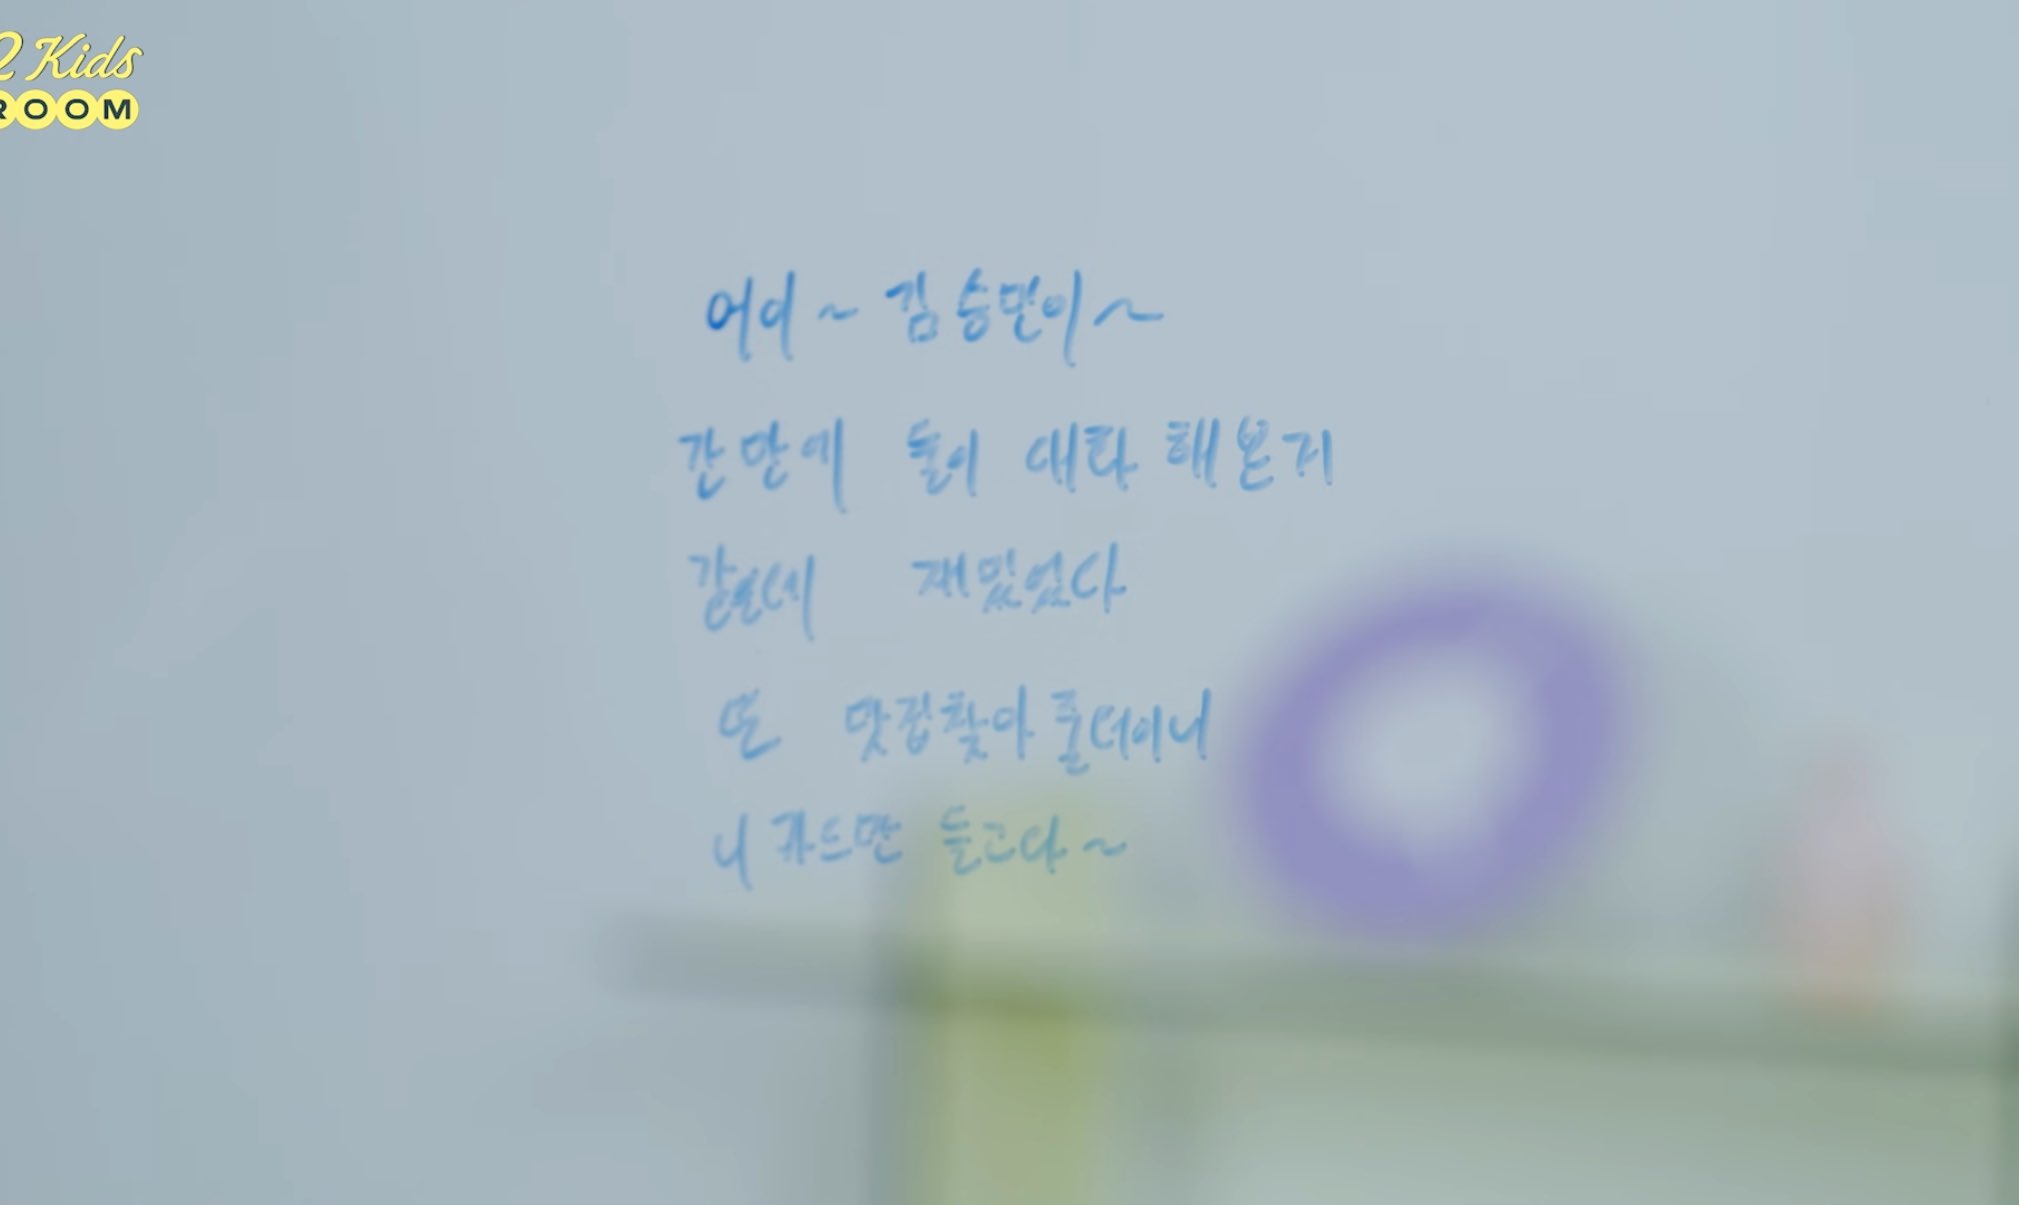 2 Kids
ROOM
어이~ 김승민이~
간만에 둘이 대화 해본거
같은데 재밌었다
또 맛집찾아줄터이니
니 카드만 들고다~